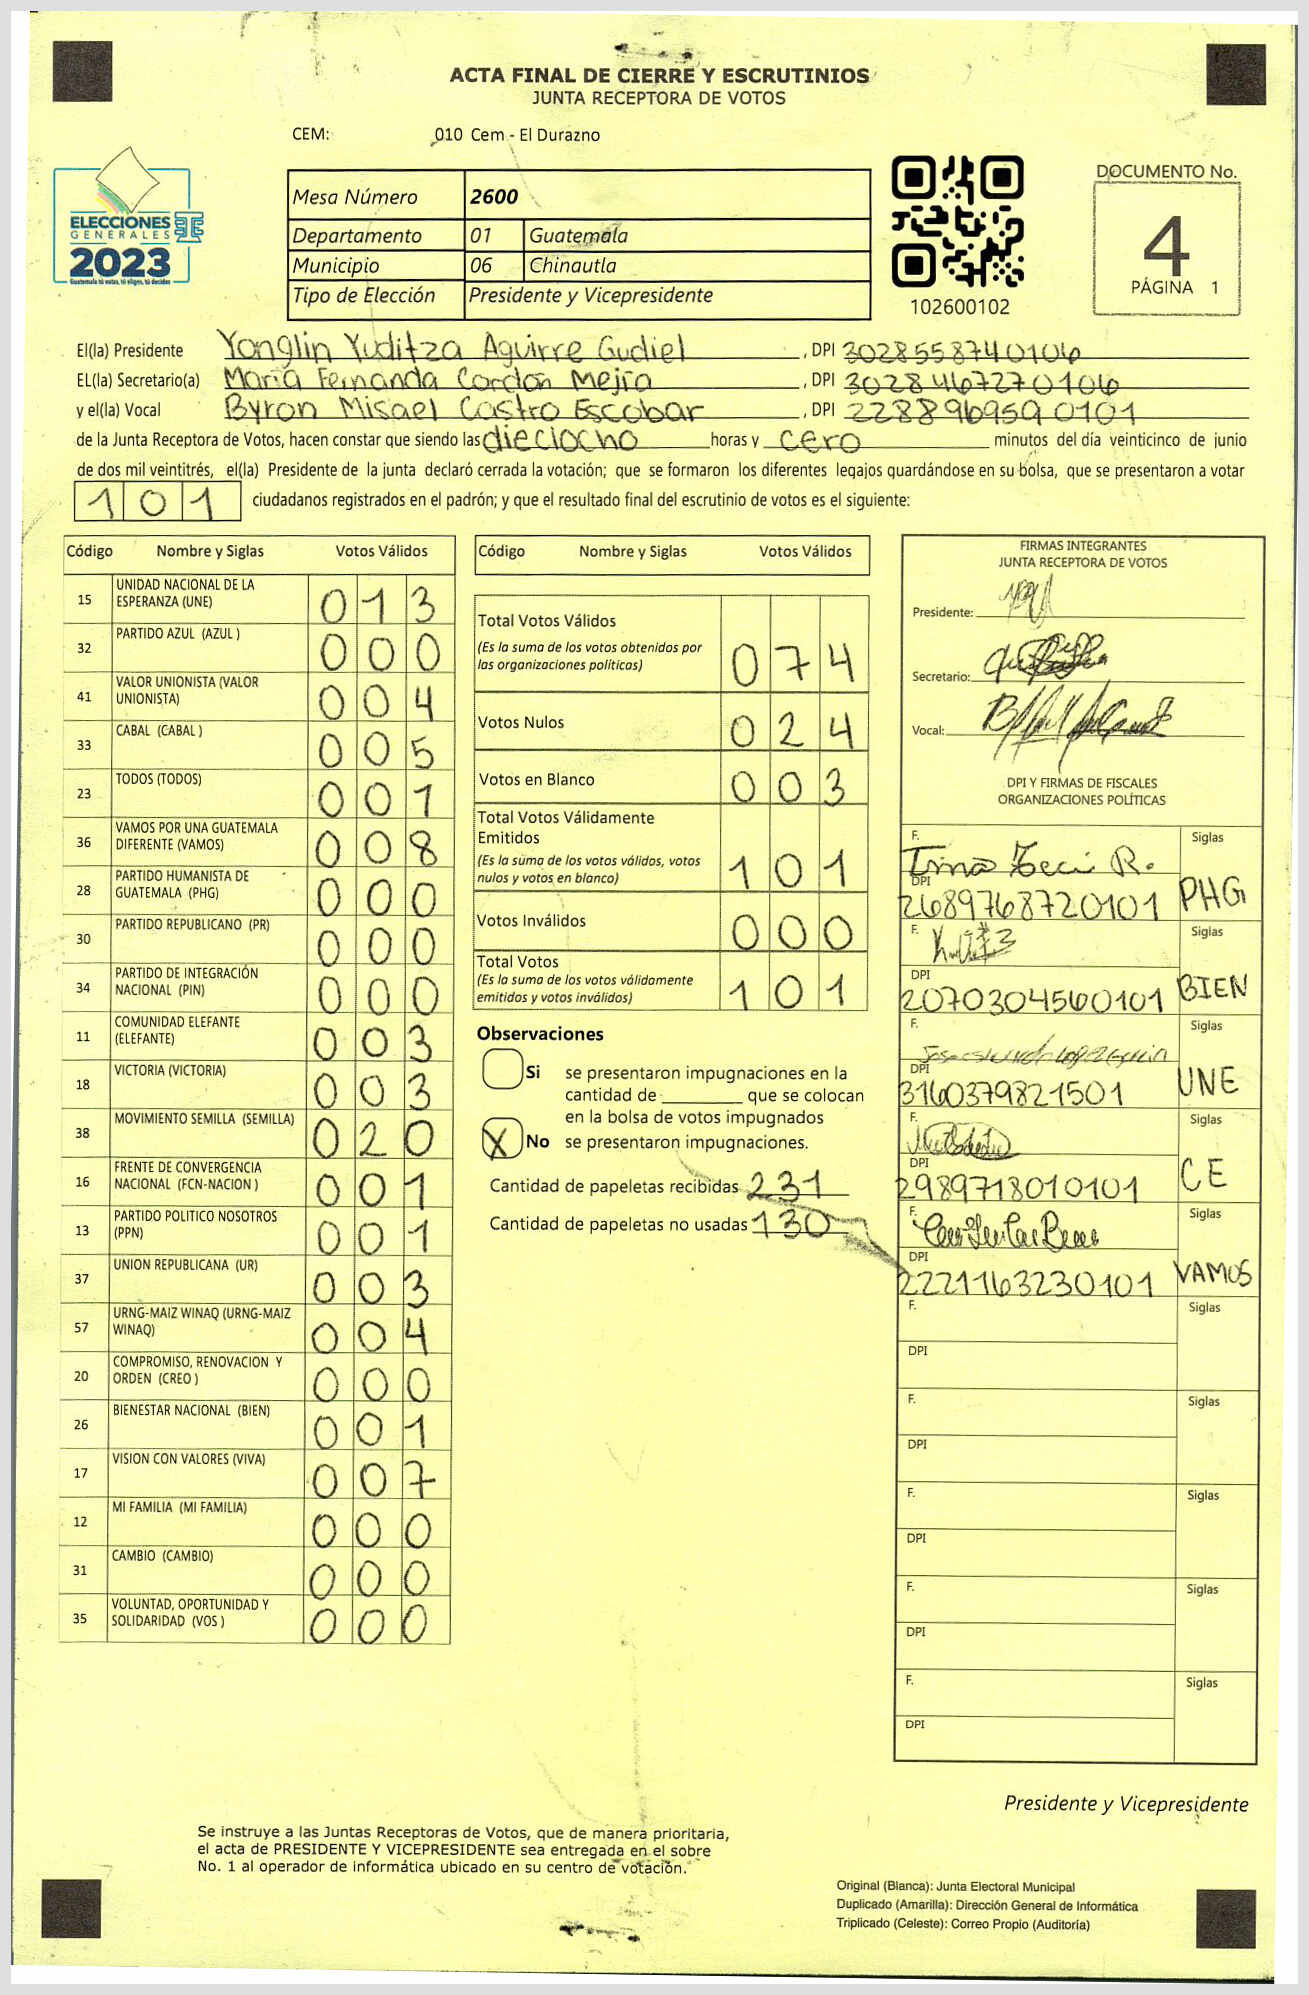 ACTA FINAL DE CIERRE Y ESCRUTINIOS
JUNTA RECEPTORA DE VOTOS
CEM: 010 Cem - El Durazno
ELECCIONES
GENERALES
2023
Guatemala tú votas, tú eliges, tú decides
Mesa Número 2600
Departamento 01 Guatemala
Municipio 06 Chinautla
Tipo de Elección Presidente y Vicepresidente
102600102
DOCUMENTO No.
4
PÁGINA 1
El(la) Presidente Yonglin Yuditza Aguirre Gudiel, DPI 3028558740106
EL(la) Secretario(a) María Fernanda Cordón Mejía, DPI 3028467270106
y el(la) Vocal Byron Misael Castro Escobar, DPI 2288969590101
de la Junta Receptora de Votos, hacen constar que siendo las dieciocho horas y cero minutos del día veinticinco de junio
de dos mil veintitrés, el(la) Presidente de la junta declaró cerrada la votación; que se formaron los diferentes legajos quardándose en su bolsa, que se presentaron a votar
101 ciudadanos registrados en el padrón; y que el resultado final del escrutinio de votos es el siguiente:
Código Nombre y Siglas Votos Válidos
15 UNIDAD NACIONAL DE LA ESPERANZA (UNE) 013
32 PARTIDO AZUL (AZUL ) 000
41 VALOR UNIONISTA (VALOR UNIONISTA) 004
33 CABAL (CABAL ) 005
23 TODOS (TODOS) 001
36 VAMOS POR UNA GUATEMALA DIFERENTE (VAMOS) 008
28 PARTIDO HUMANISTA DE GUATEMALA (PHG) 000
30 PARTIDO REPUBLICANO (PR) 000
34 PARTIDO DE INTEGRACIÓN NACIONAL (PIN) 000
11 COMUNIDAD ELEFANTE (ELEFANTE) 003
18 VICTORIA (VICTORIA) 003
38 MOVIMIENTO SEMILLA (SEMILLA) 020
16 FRENTE DE CONVERGENCIA NACIONAL (FCN-NACION ) 001
13 PARTIDO POLITICO NOSOTROS (PPN) 001
37 UNION REPUBLICANA (UR) 003
57 URNG-MAIZ WINAQ (URNG-MAIZ WINAQ) 004
20 COMPROMISO, RENOVACION Y ORDEN (CREO ) 000
26 BIENESTAR NACIONAL (BIEN) 001
17 VISION CON VALORES (VIVA) 007
12 MI FAMILIA (MI FAMILIA) 000
31 CAMBIO (CAMBIO) 000
35 VOLUNTAD, OPORTUNIDAD Y SOLIDARIDAD (VOS ) 000
Código Nombre y Siglas Votos Válidos
Total Votos Válidos
(Es la suma de los votos obtenidos por
las organizaciones políticas) 074
Votos Nulos 024
Votos en Blanco 003
Total Votos Válidamente
Emitidos
(Es la suma de los votos válidos, votos
nulos y votos en blanco) 101
Votos Inválidos 000
Total Votos
(Es la suma de los votos válidamente
emitidos y votos inválidos) 101
Observaciones
Si se presentaron impugnaciones en la
cantidad de ________ que se colocan
en la bolsa de votos impugnados
X No se presentaron impugnaciones.
Cantidad de papeletas recibidas 231
Cantidad de papeletas no usadas 130
FIRMAS INTEGRANTES
JUNTA RECEPTORA DE VOTOS
Presidente:
Secretario:
Vocal:
DPI Y FIRMAS DE FISCALES
ORGANIZACIONES POLÍTICAS
F. Siglas
DPI 2689768720101 PHG
F. Siglas
DPI 2070304560101 BIEN
F. Siglas
DPI 3160379821501 UNE
F. Siglas
DPI 2989718010101 CE
F. Siglas
DPI 2221163230101 VAMOS
F. Siglas
DPI
F. Siglas
DPI
F. Siglas
DPI
F. Siglas
DPI
F. Siglas
DPI
Presidente y Vicepresidente
Se instruye a las Juntas Receptoras de Votos, que de manera prioritaria,
el acta de PRESIDENTE Y VICEPRESIDENTE sea entregada en el sobre
No. 1 al operador de informática ubicado en su centro de votación.
Original (Blanca): Junta Electoral Municipal
Duplicado (Amarilla): Dirección General de Informática
Triplicado (Celeste): Correo Propio (Auditoría)